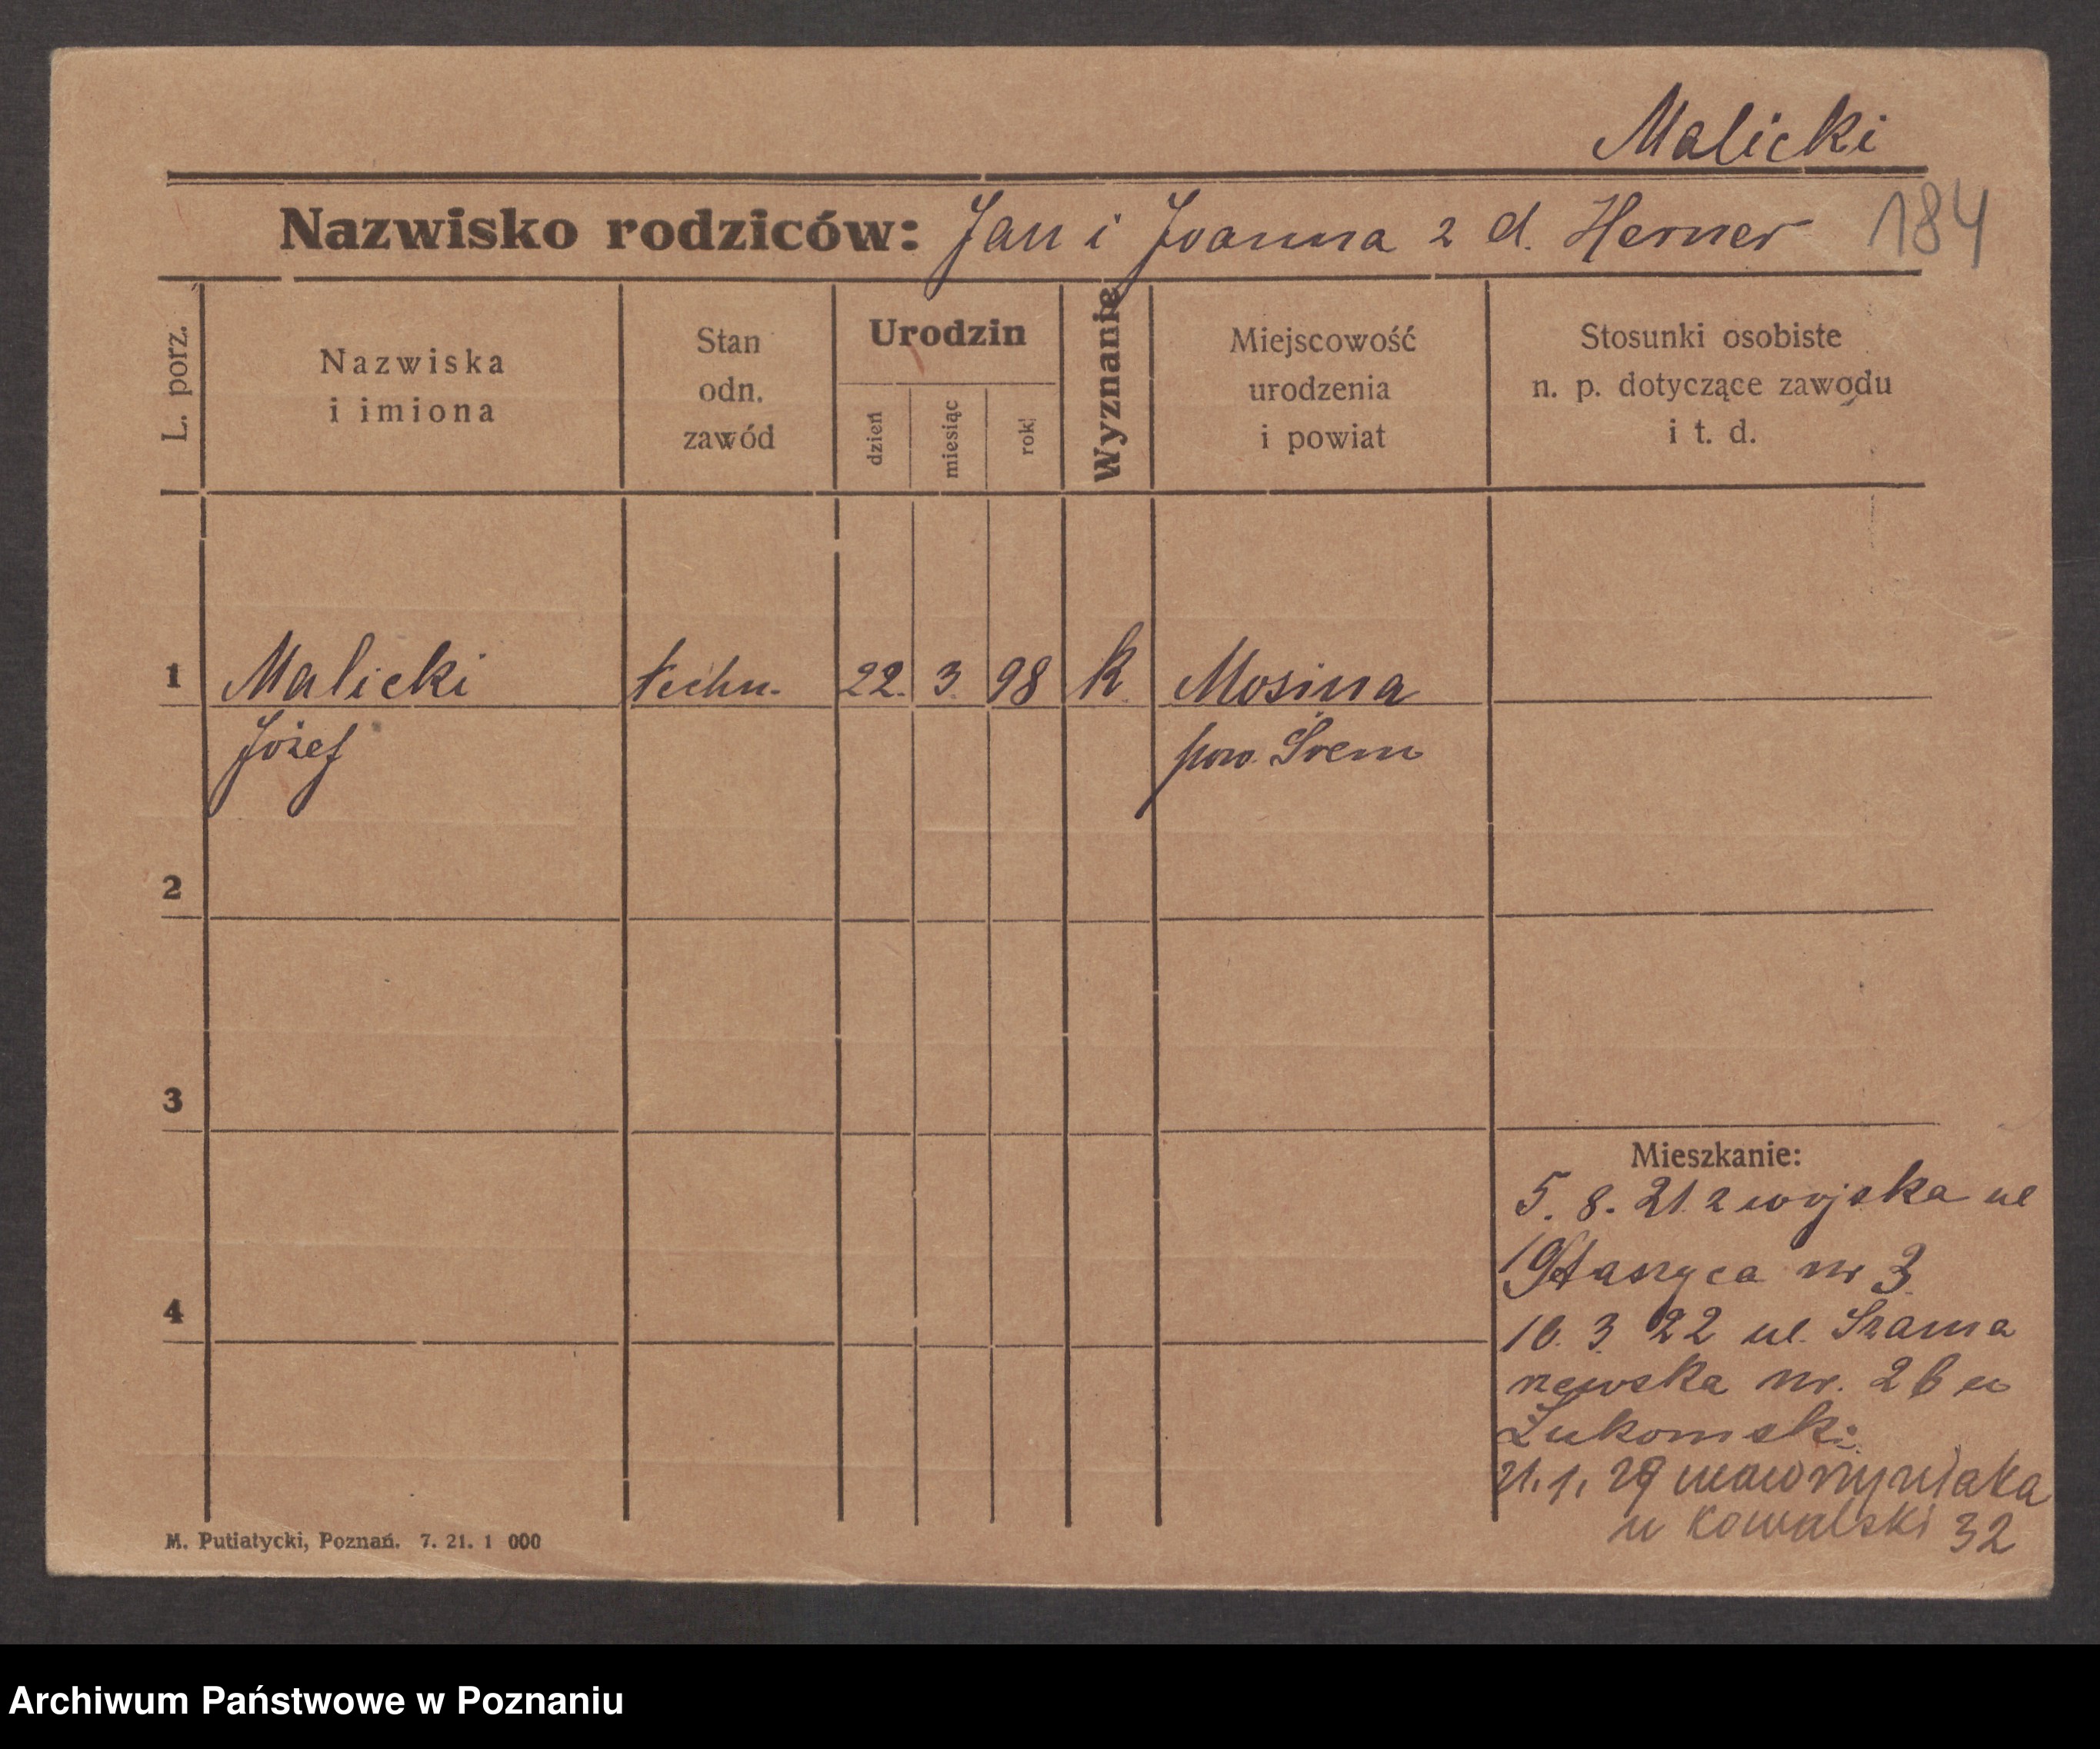 Malicki
Nazwisko rodziców: Jan i Joanna z d. Herner 184
L. porz.
Nazwiska
i imiona
Stan
odn.
zawód
Urodzin
dzień
miesiąc
rok
Wyznanie
Miejscowość
urodzenia
i powiat
Stosunki osobiste
n. p. dotyczące zawodu
i t. d.
1 Malicki techn. 22. 3. 98 k. Mosina
Józef pow. Śrem
2
3
4
Mieszkanie:
5. 8. 21. z wojska ul
Staszyca nr 3.
10. 3. 22 ul. Szama
rzewska nr. 26 u
Żukomski
21. 1. u Kowalski 32
M. Putiatycki, Poznań. 7. 21. 1 000
Archiwum Państwowe w Poznaniu